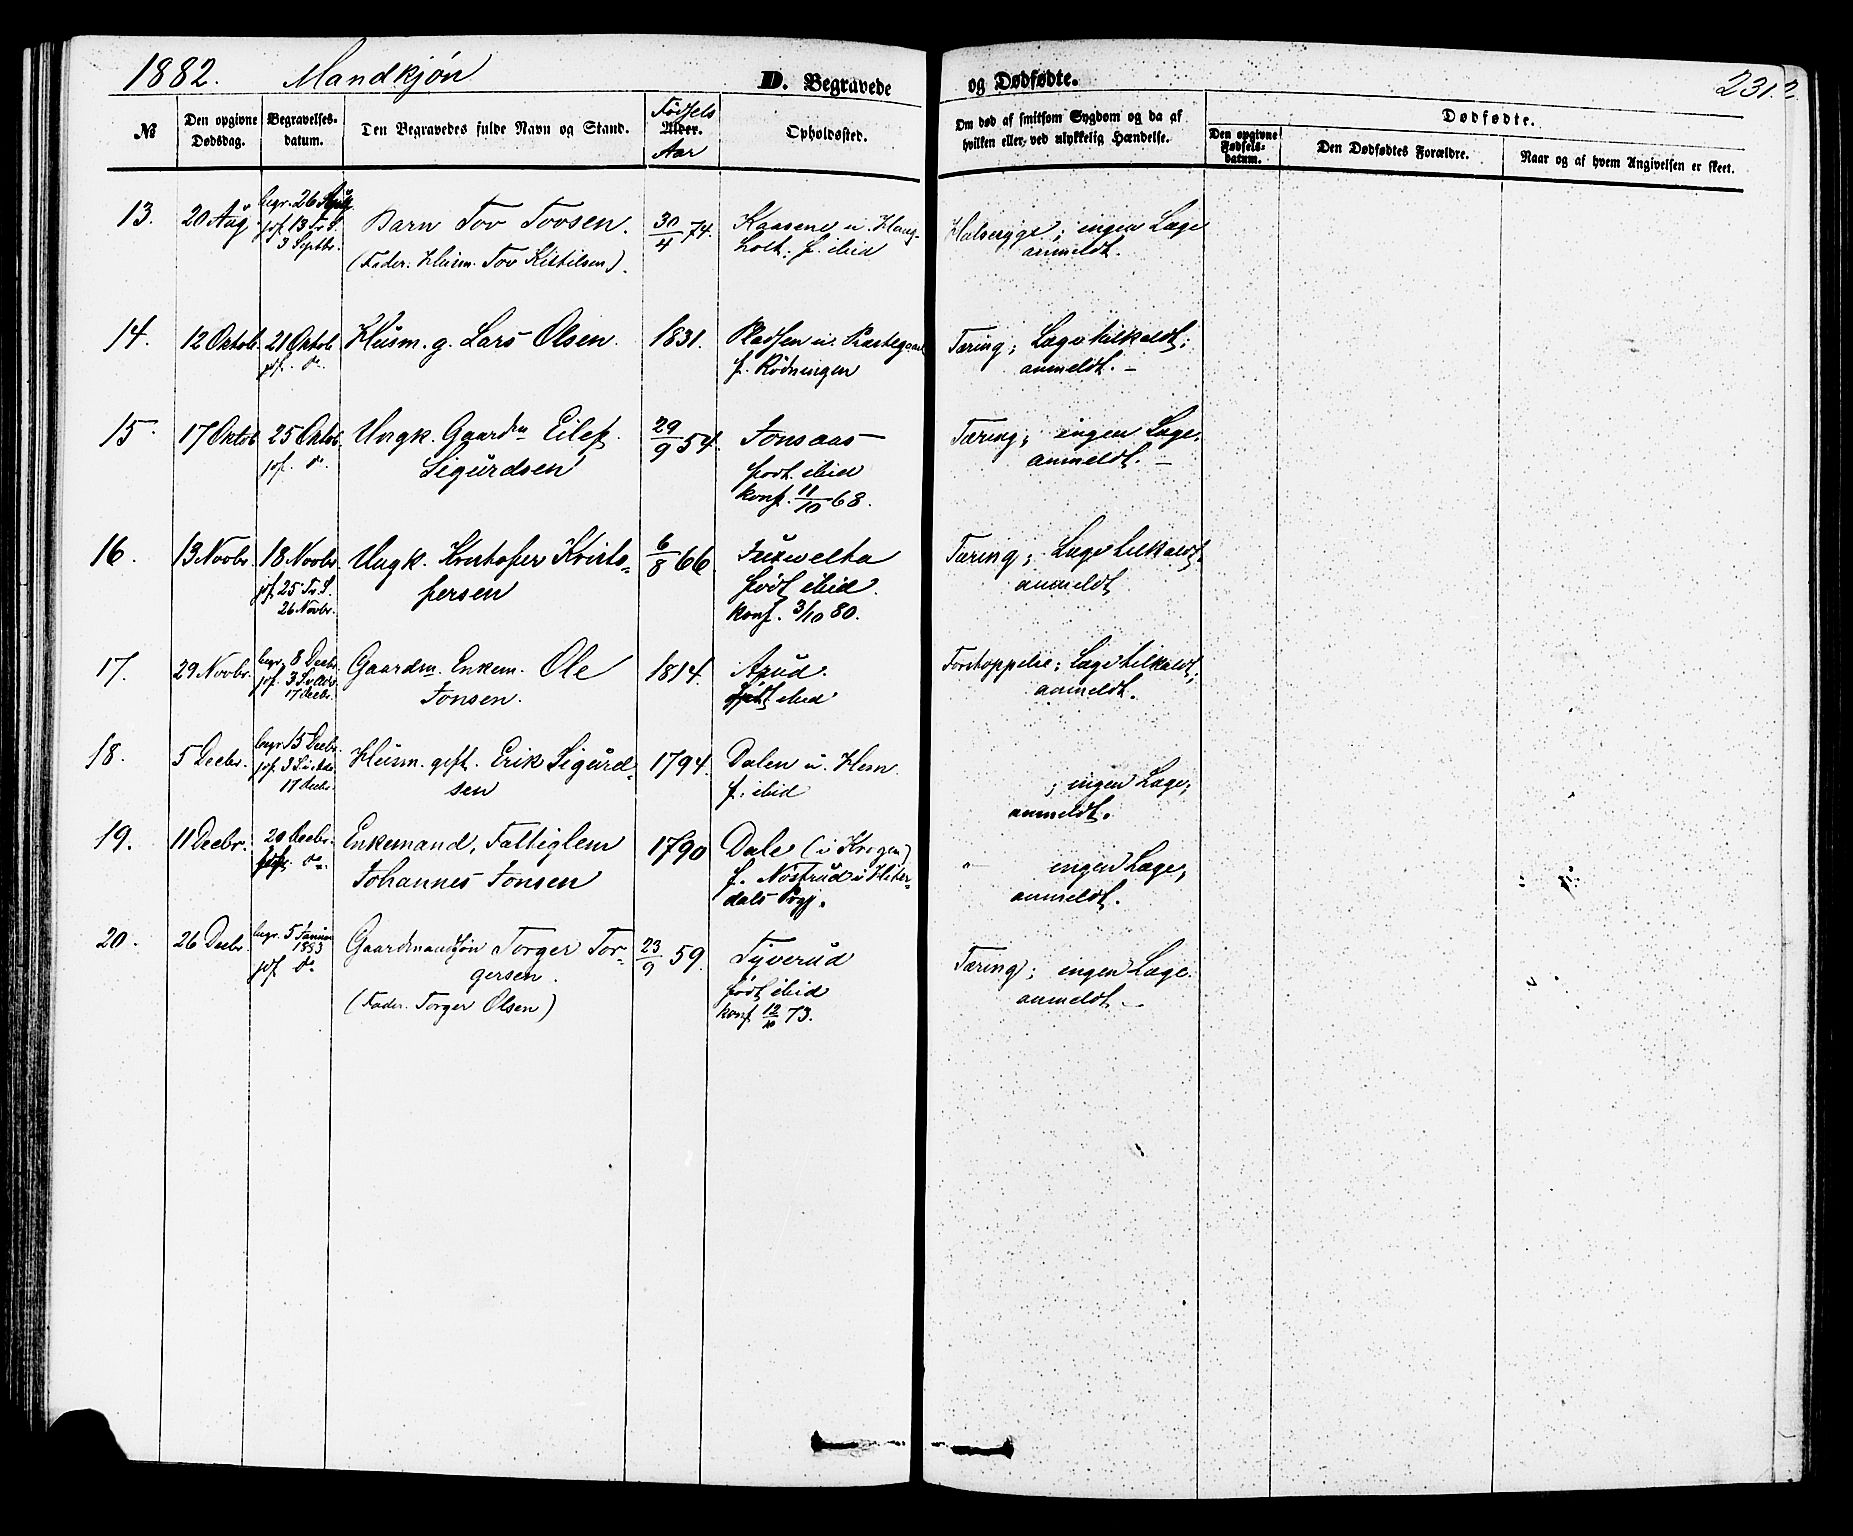 1882. Mandkjøn
D. Begravede
og Dødfødte.
231.
№
Den opgivne Dødsdag.
Begravelses-datum.
Den Begravedes fulde Navn og Stand.
Fødsels
Alder.
Aar
Opholdssted.
Om død af smitsom Sygdom og da af
hvilken eller ved ulykkelig Hændelse.
Dødfødte.
Den opgivne Fødsels-datum.
Den Dødfødtes Forældre.
Naar og af hvem Angivelsen er skeet.
13. 20 Aug. begr. 26 Aug. Barn Tov Tovsen. 30/4 74. Kaasene u. Haug-
jof. 13 Tr. S. 3 Septbr. (Fader: Husm. Tov Kittilsen). holt; f. ibid
Halssyge; ingen Læge
anmeldt.
14. 12 Oktob. 21 Oktob. Husm. g. Lars Olsen. 1831. Pladsen u. Præstegaard
jof. do. f. Rödningen
Tæring; Læge tilkaldt;
anmeldt. –
15. 17 Oktob. 25 Oktob. Ungk. Gaardm. Eilef 29/9 54. Jonsaas
jof. do. Sigurdsen født ibid
konf. 11/10 68.
Tæring; ingen Læge,
anmeldt. –
16. 13 Novbr. 18 Novbr. Ungk. Kristofer Kristo- 6/8 66
jof. 25 Tr. S. 26 Novbr. fersen født ibid.
konf. 3/10 80.
Tæring; Læge tilkaldt.
anmeldt
17. 29 Novbr. begr. 8 Decbr. Gaardm. Enkem. Ole 1814. Apud.
jof. 3 S. i Adv. 17 Decbr. Jonsen. født ibid
Forstoppelse; Læge tilkaldt;
anmeldt.
18. 5 Decbr. begr. 15 Decbr. Husm. gift. Erik Sigurd- 1794. Dalen u. Hem.
jof. 3 S. i Adv. 17 Decbr. sen f. ibid
; ingen Læge;
anmeldt.
19. 11 Decbr. 20 Decbr. Enkemand, Fattiglem 1790 Dale
jof. do. Johannes Jonsen f. Nostrud i Hiter-
dals Prgj.
" ingen Læge,
anmeldt.
20. 26 Decbr. begr. 5 Januar 1883 Gaardmandssøn Torger Tor- 23/9 59. Tyverud
jof. do. gersen. født ibid
(Fader: Torger Olsen) konf. 12/10 73.
Tæring; ingen Læge.
anmeldt. –